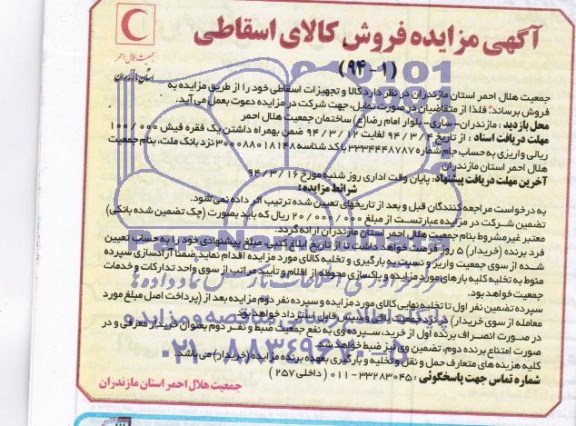 آگهی مزایده فروش کالای اسقاطی
(۹۴-۱)
جمعیت هلال احمر
استان مازندران
جمعیت هلال احمر استان مازندران در نظر دارد کالا و تجهیزات اسقاطی خود را از طریق مزایده به
فروش برساند؛ فلذا از متقاضیان در صورت تمایل، جهت شرکت در مزایده دعوت بعمل می‌آید.
محل بازدید: مازندران-ساری- بلوار امام رضا(ع) ساختمان جمعیت هلال احمر
مهلت دریافت اسناد: از تاریخ ۹۴/۳/۴ لغایت ۹۴/۳/۱۲ ضمن بهمراه داشتن یک فقره فیش ۱۰۰/۰۰۰
ریالی واریزی به حساب جام شماره ۳۳۳۴۴۴۸۷۸۷ با کد شناسه ۳۰۰۰۰۸۸۰۱۸۱۴۸ نزد بانک ملت، بنام جمعیت
هلال احمر استان مازندران
آخرین مهلت دریافت پیشنهاد: پایان وقت اداری روز شنبه مورخ ۹۴/۳/۱۶
شرائط مزایده:
به درخواست مراجعه کنندگان قبل و بعد از تاریخهای تعیین شده ترتیب اثر داده نمی‌شود.
تضمین شرکت در مزایده عبارتست از مبلغ ۲۰/۰۰۰/۰۰۰ ریال که باید بصورت (چک تضمین شده بانکی)
معتبر غیرمشروط بنام جمعیت هلال احمر استان مازندران ارائه گردد.
فرد برنده (خریدار) ۵ روز فرصت خواهد داشت تا از تاریخ ابلاغ کتبی، مبلغ پیشنهادی خود را به حساب تعیین
شده از سوی جمعیت واریز و نسبت به بارگیری و تخلیه کالای مورد مزایده اقدام نماید. ضمناً آزادسازی سپرده
منوط به تخلیه کلیه بارهای مورد مزایده و پاکسازی محوطه از اقلام و تأیید مراتب از سوی واحد تدارکات و خدمات
جمعیت خواهد بود.
سپرده تضمین نفر اول تا تخلیه نهایی کالای مورد مزایده و سپرده نفر دوم مزایده بعد از (پرداخت اصل مبلغ مورد
معامله از سوی خریدار) در ید جمعیت باقی و سپس قابل استرداد خواهد بود.
در صورت انصراف برنده اول از خرید، سپرده وی به نفع جمعیت ضبط و نفر دوم بعنوان خریدار معرفی و در
صورت امتناع برنده دوم، تضمین وی نیز ضبط خواهد شد.
کلیه هزینه های متعارف حمل و نقل و تخلیه و بارگیری بعهده برنده مزایده (خریدار) می‌باشد.
شماره تماس جهت پاسخگوئی: ۳۳۲۸۳۰۴۵-۰۱۱ (داخلی ۲۵۷)
جمعیت هلال احمر استان مازندران
۰۲۱-۸۸۳۴۹۶۷۰-۵